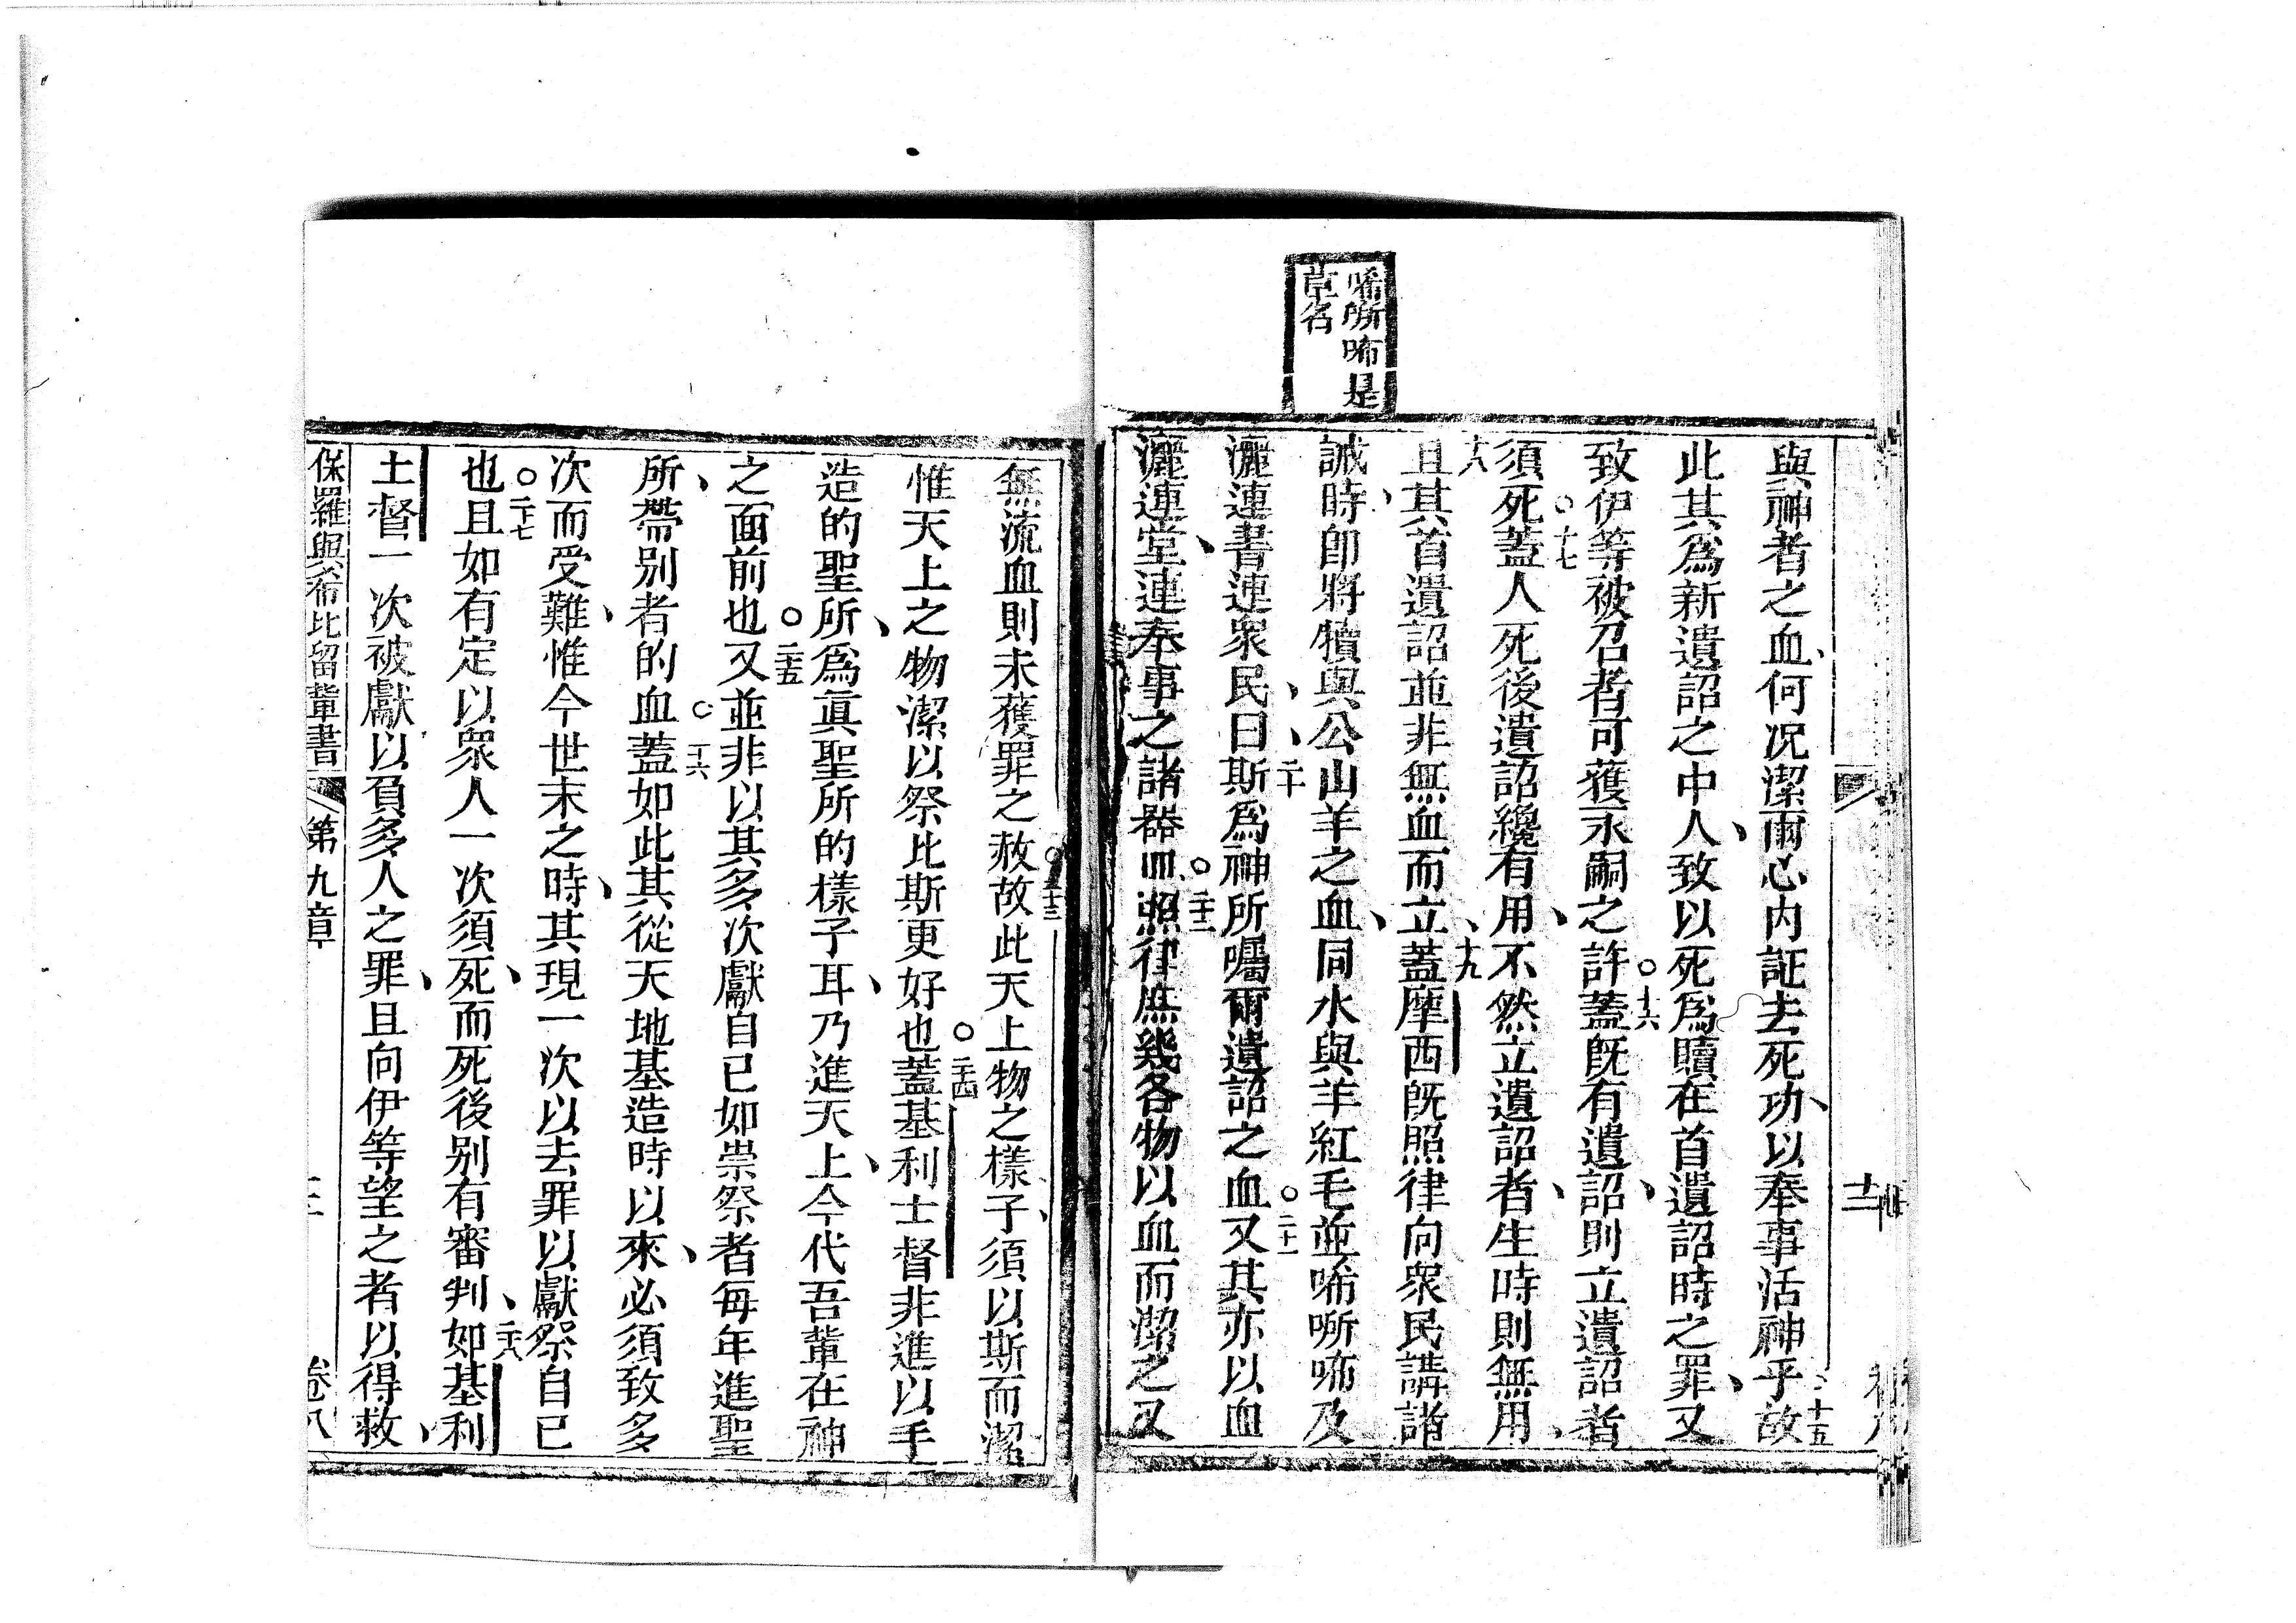 唏㗭咘是
草名
與神者之血何况潔爾心內証去死功以奉事活神乎故
十五
此其爲新遺詔之中人致以死爲贖在首遺詔時之罪又
致伊等被召者可獲永嗣之許蓋旣有遺詔則立遺詔者
十六
須死蓋人死後遺詔纔有用不然立遺詔者生時則無用
十七
十八
且其首遺詔並非無血而立蓋摩西旣照律向眾民講諸
十九
誡時卽將犢與公山羊之血同水與羊紅毛並唏㗭咘及
灑連書連眾民曰斯爲神所囑爾遺詔之血又其亦以血
二十
二十一
灑連堂連奉事之諸器皿照律庶幾各物以血而潔之又
二十二
無流血則未獲罪之赦故此天上物之樣子須以斯而潔
二十三
惟天上之物潔以祭比斯更好也蓋基利士督非進以手
二十四
造的聖所爲眞聖所的樣子耳乃進天上今代吾輩在神
之面前也又並非以其多次獻自已如崇祭者每年進聖
二十五
所帶别者的血蓋如此其從天地基造時以來必須致多
二十六
次而受難惟今世末之時其現一次以去罪以獻祭自已
也且如有定以眾人一次須死而死後别有審判如基利
二十七
二十八
士督一次被獻以負多人之罪且向伊等望之者以得救
保羅與希比留輩書
第九章
卷八